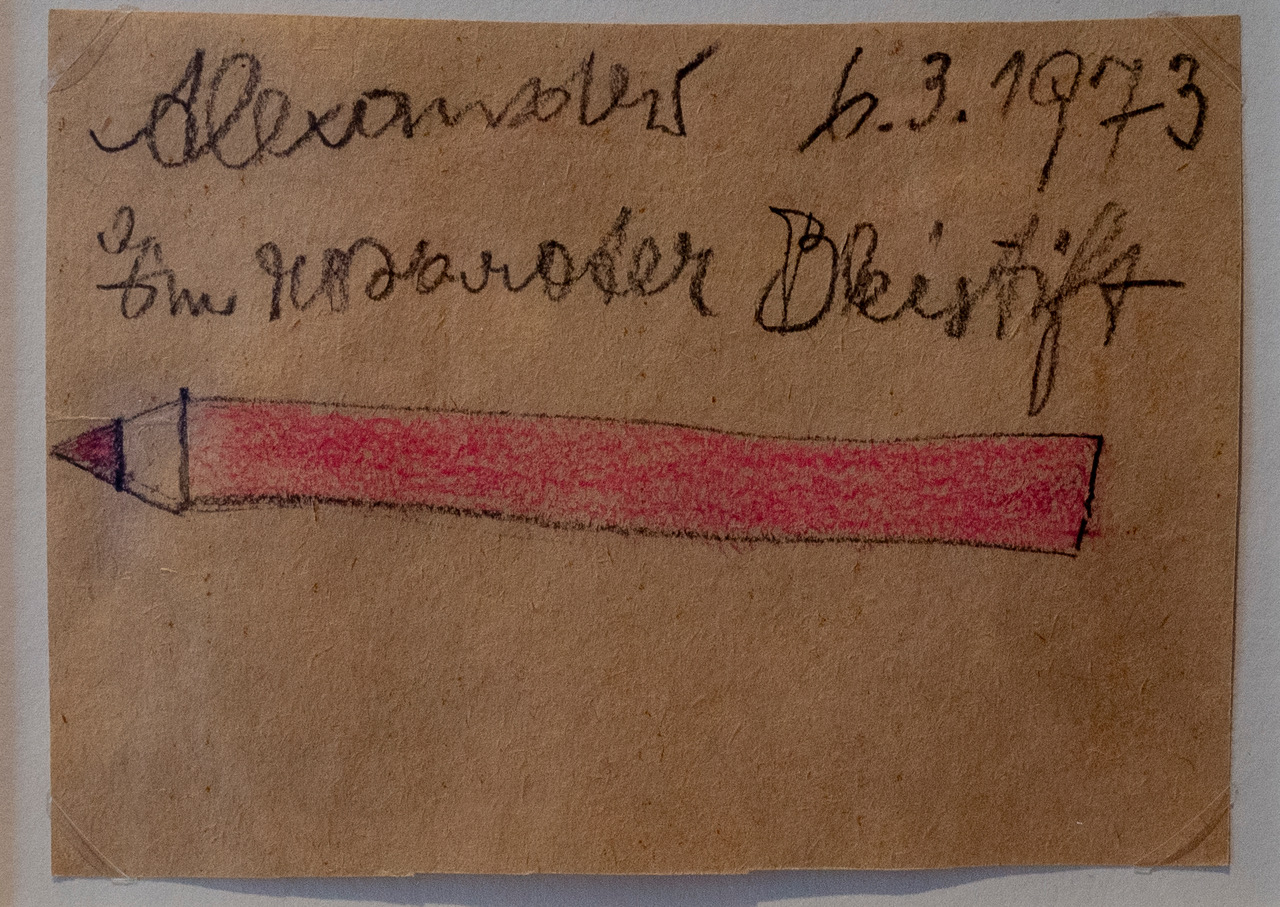 Alexander 6.3.1973
Ein rosaroter Bleistift